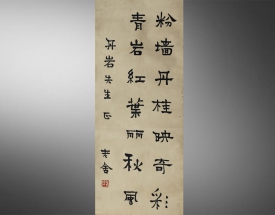 粉墙丹桂映奇彩
青岩红葉丽秋风
丹岩先生正
老舍